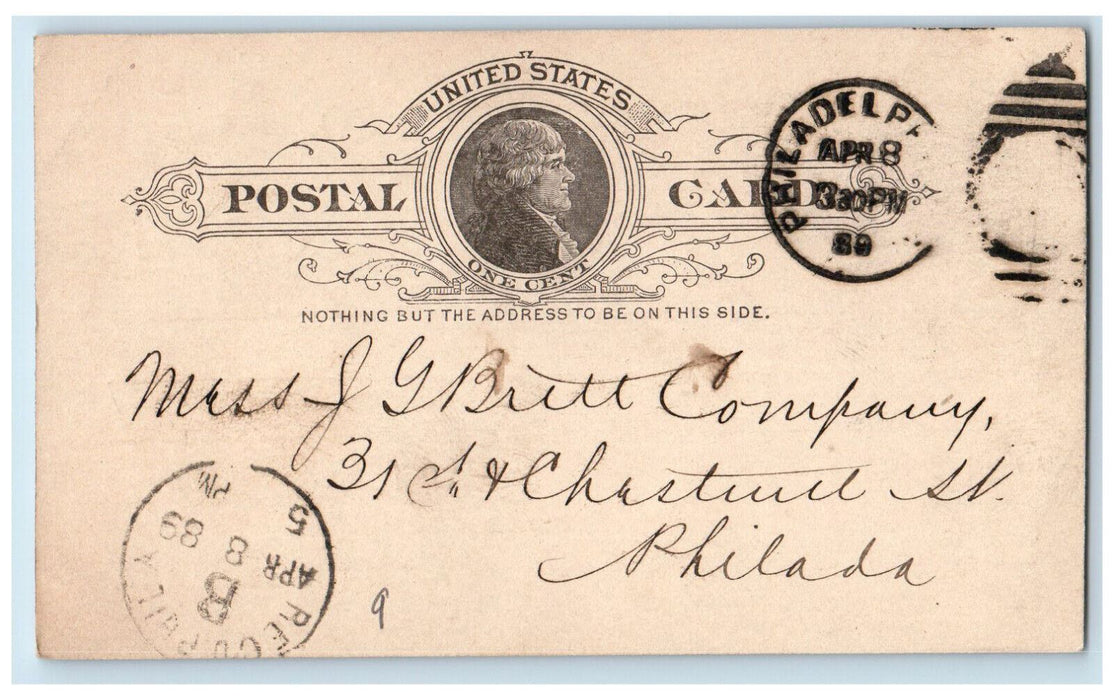 UNITED STATES
POSTAL CARD
ONE CENT
NOTHING BUT THE ADDRESS TO BE ON THIS SIDE.
PHILADELP
APR 8
330PM
89
Mess J G Brett Company,
31 St & Chestnut St.
Philada
REC'D PHILA
B
APR 8 89
5 PM
9